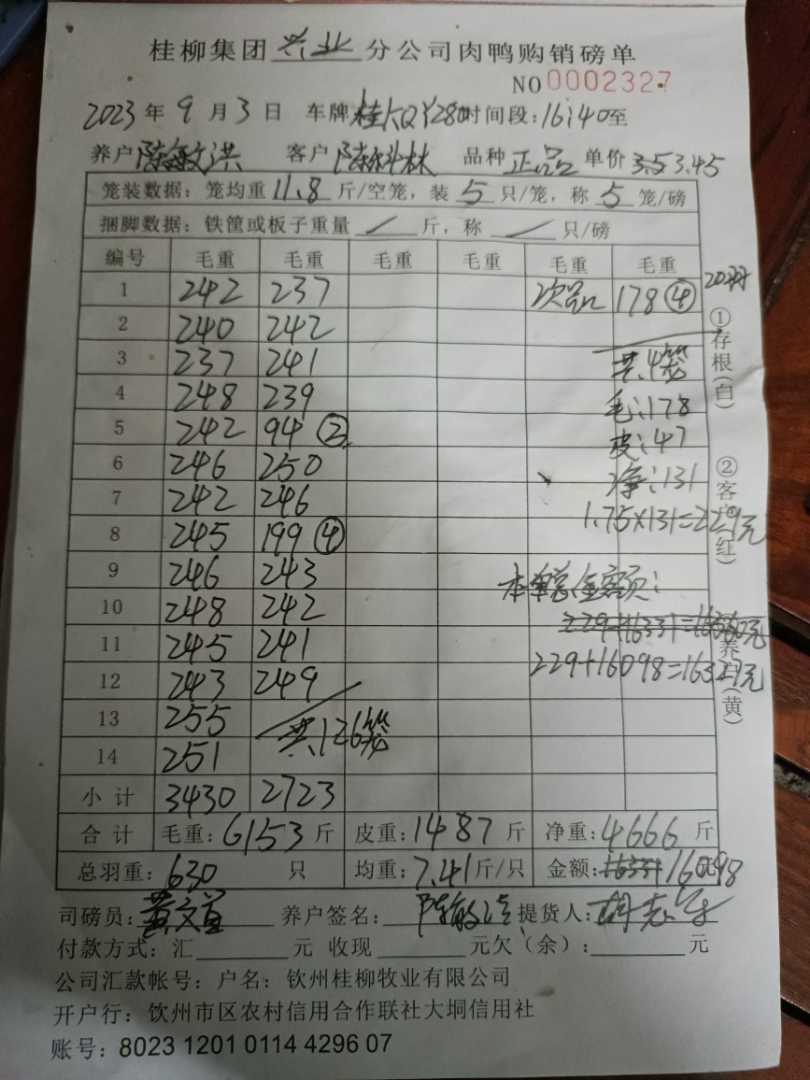 桂柳集团 兴业 分公司肉鸭购销磅单
NO 0002327
2023 年 9 月 3 日 车牌 时间段: 16:40 至
养户 陈敏洪 客户 陈科林 品种 正品 单价 3.5 3.45
笼装数据: 笼均重 11.8 斤/空笼, 装 5 只/笼, 称 5 笼/磅
捆脚数据: 铁筐或板子重量 / 斤, 称 / 只/磅
编号 毛重 毛重 毛重 毛重 毛重 毛重
1 242 237 次品 178 ④
2 240 242
3 237 241 共4笼
4 248 239 毛:178
5 242 94 ② 皮:47
6 246 250 净:131
7 242 246 1.75×131=229元
8 245 199 ④
9 246 243 本单总金额:
10 248 242 229+16331=16560元
11 245 241 229+16098=16327元
12 243 249
13 255 共126笼
14 251
小计 3430 2723
合计 毛重: 6153 斤 皮重: 1487 斤 净重: 4666 斤
总羽重: 630 只 均重: 7.41 斤/只 金额: 16331 16098
司磅员: 养户签名: 提货人:
付款方式: 汇 元 收现 元 欠(余): 元
公司汇款帐号: 户名: 钦州桂柳牧业有限公司
开户行: 钦州市区农村信用合作联社大垌信用社
账号: 8023 1201 0114 4296 07
①存根(白)
②客户(红)
养(黄)